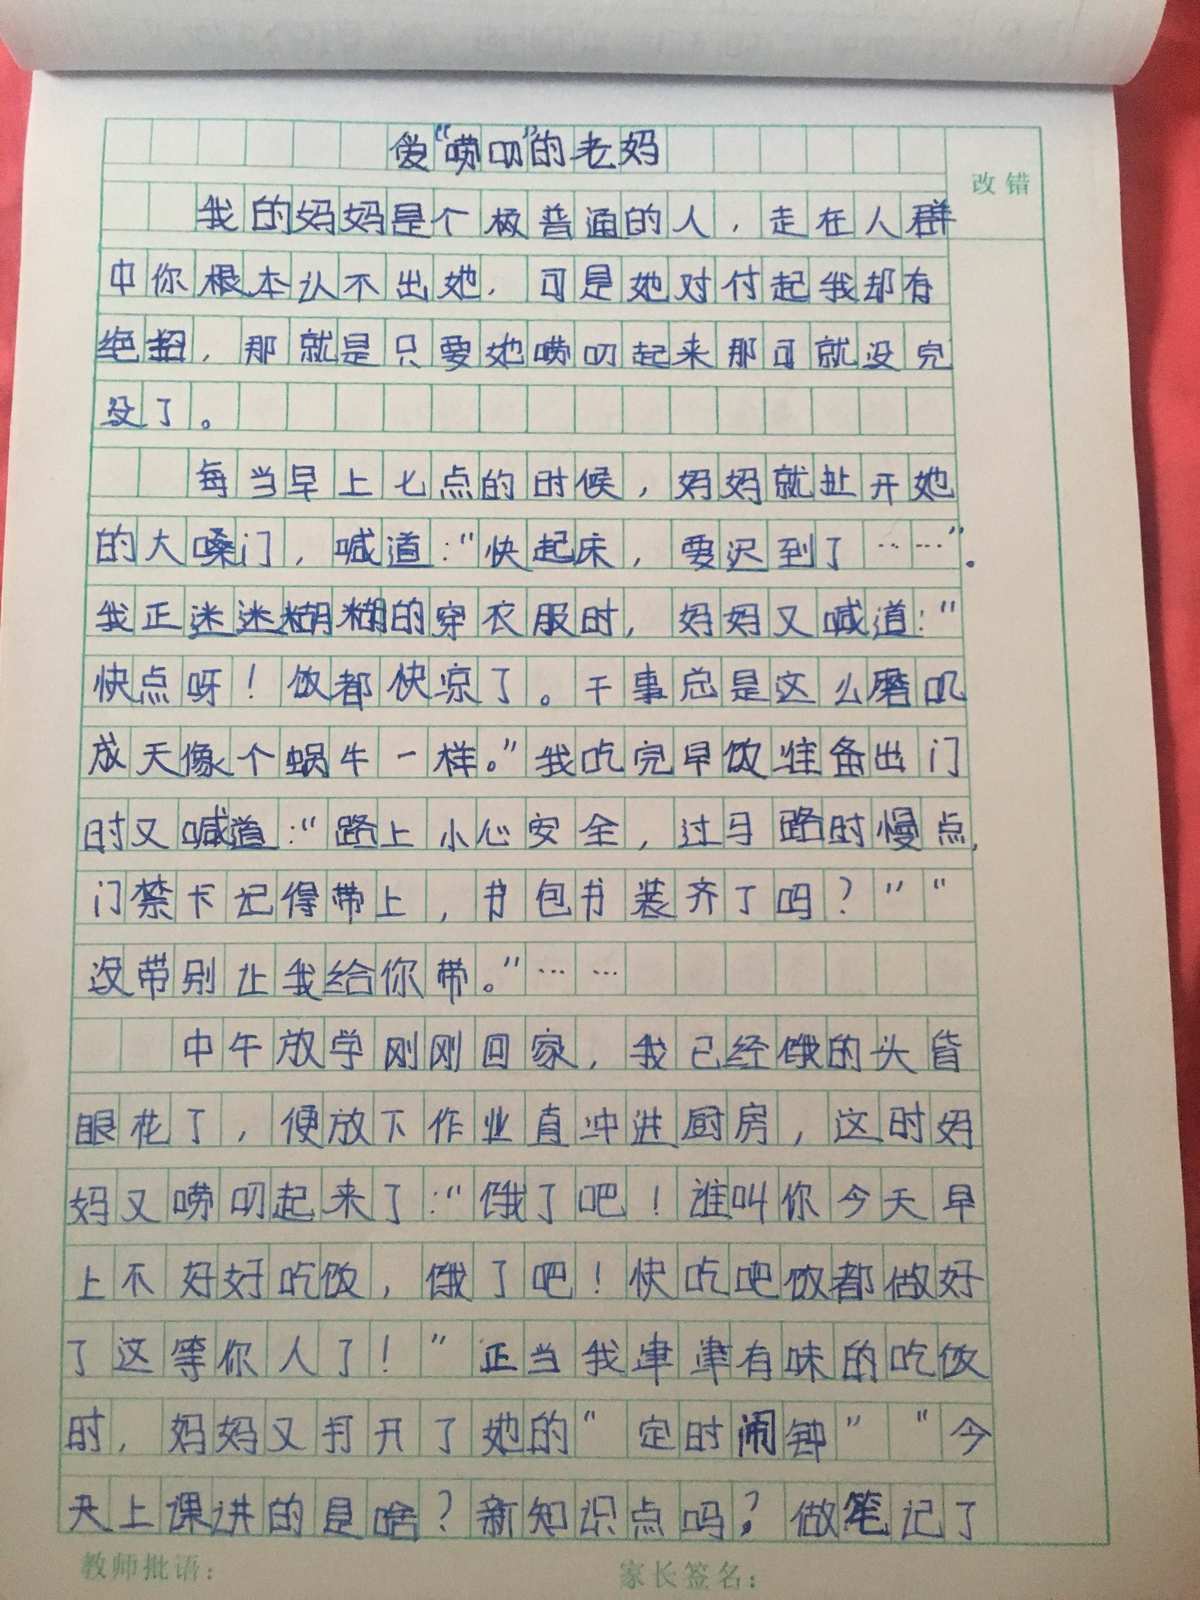 爱“唠叨”的老妈
改错
我的妈妈是个极普通的人，走在人群
中你根本认不出她，可是她对付起我却有
绝招，那就是只要她唠叨起来那可就没完
没了。
每当早上七点的时候，妈妈就扯开她
的大嗓门，喊道：“快起床，要迟到了……”。
我正迷迷糊糊的穿衣服时，妈妈又喊道：“
快点呀！饭都快凉了。干事总是这么磨叽
成天像个蜗牛一样。”我吃完早饭准备出门
时又喊道：“路上小心安全，过马路时慢点，
门禁卡记得带上，书包书装齐了吗？”“
没带别让我给你带。”……
中午放学刚刚回家，我已经饿的头昏
眼花了，便放下作业直冲进厨房，这时妈
妈又唠叨起来了：“饿了吧！谁叫你今天早
上不好好吃饭，饿了吧！快吃吧饭都做好
了这等你人了！”正当我津津有味的吃饭
时，妈妈又打开了她的“定时闹钟”“今
天上课进的是啥？新知识点吗？做笔记了
教师批语：
家长签名：